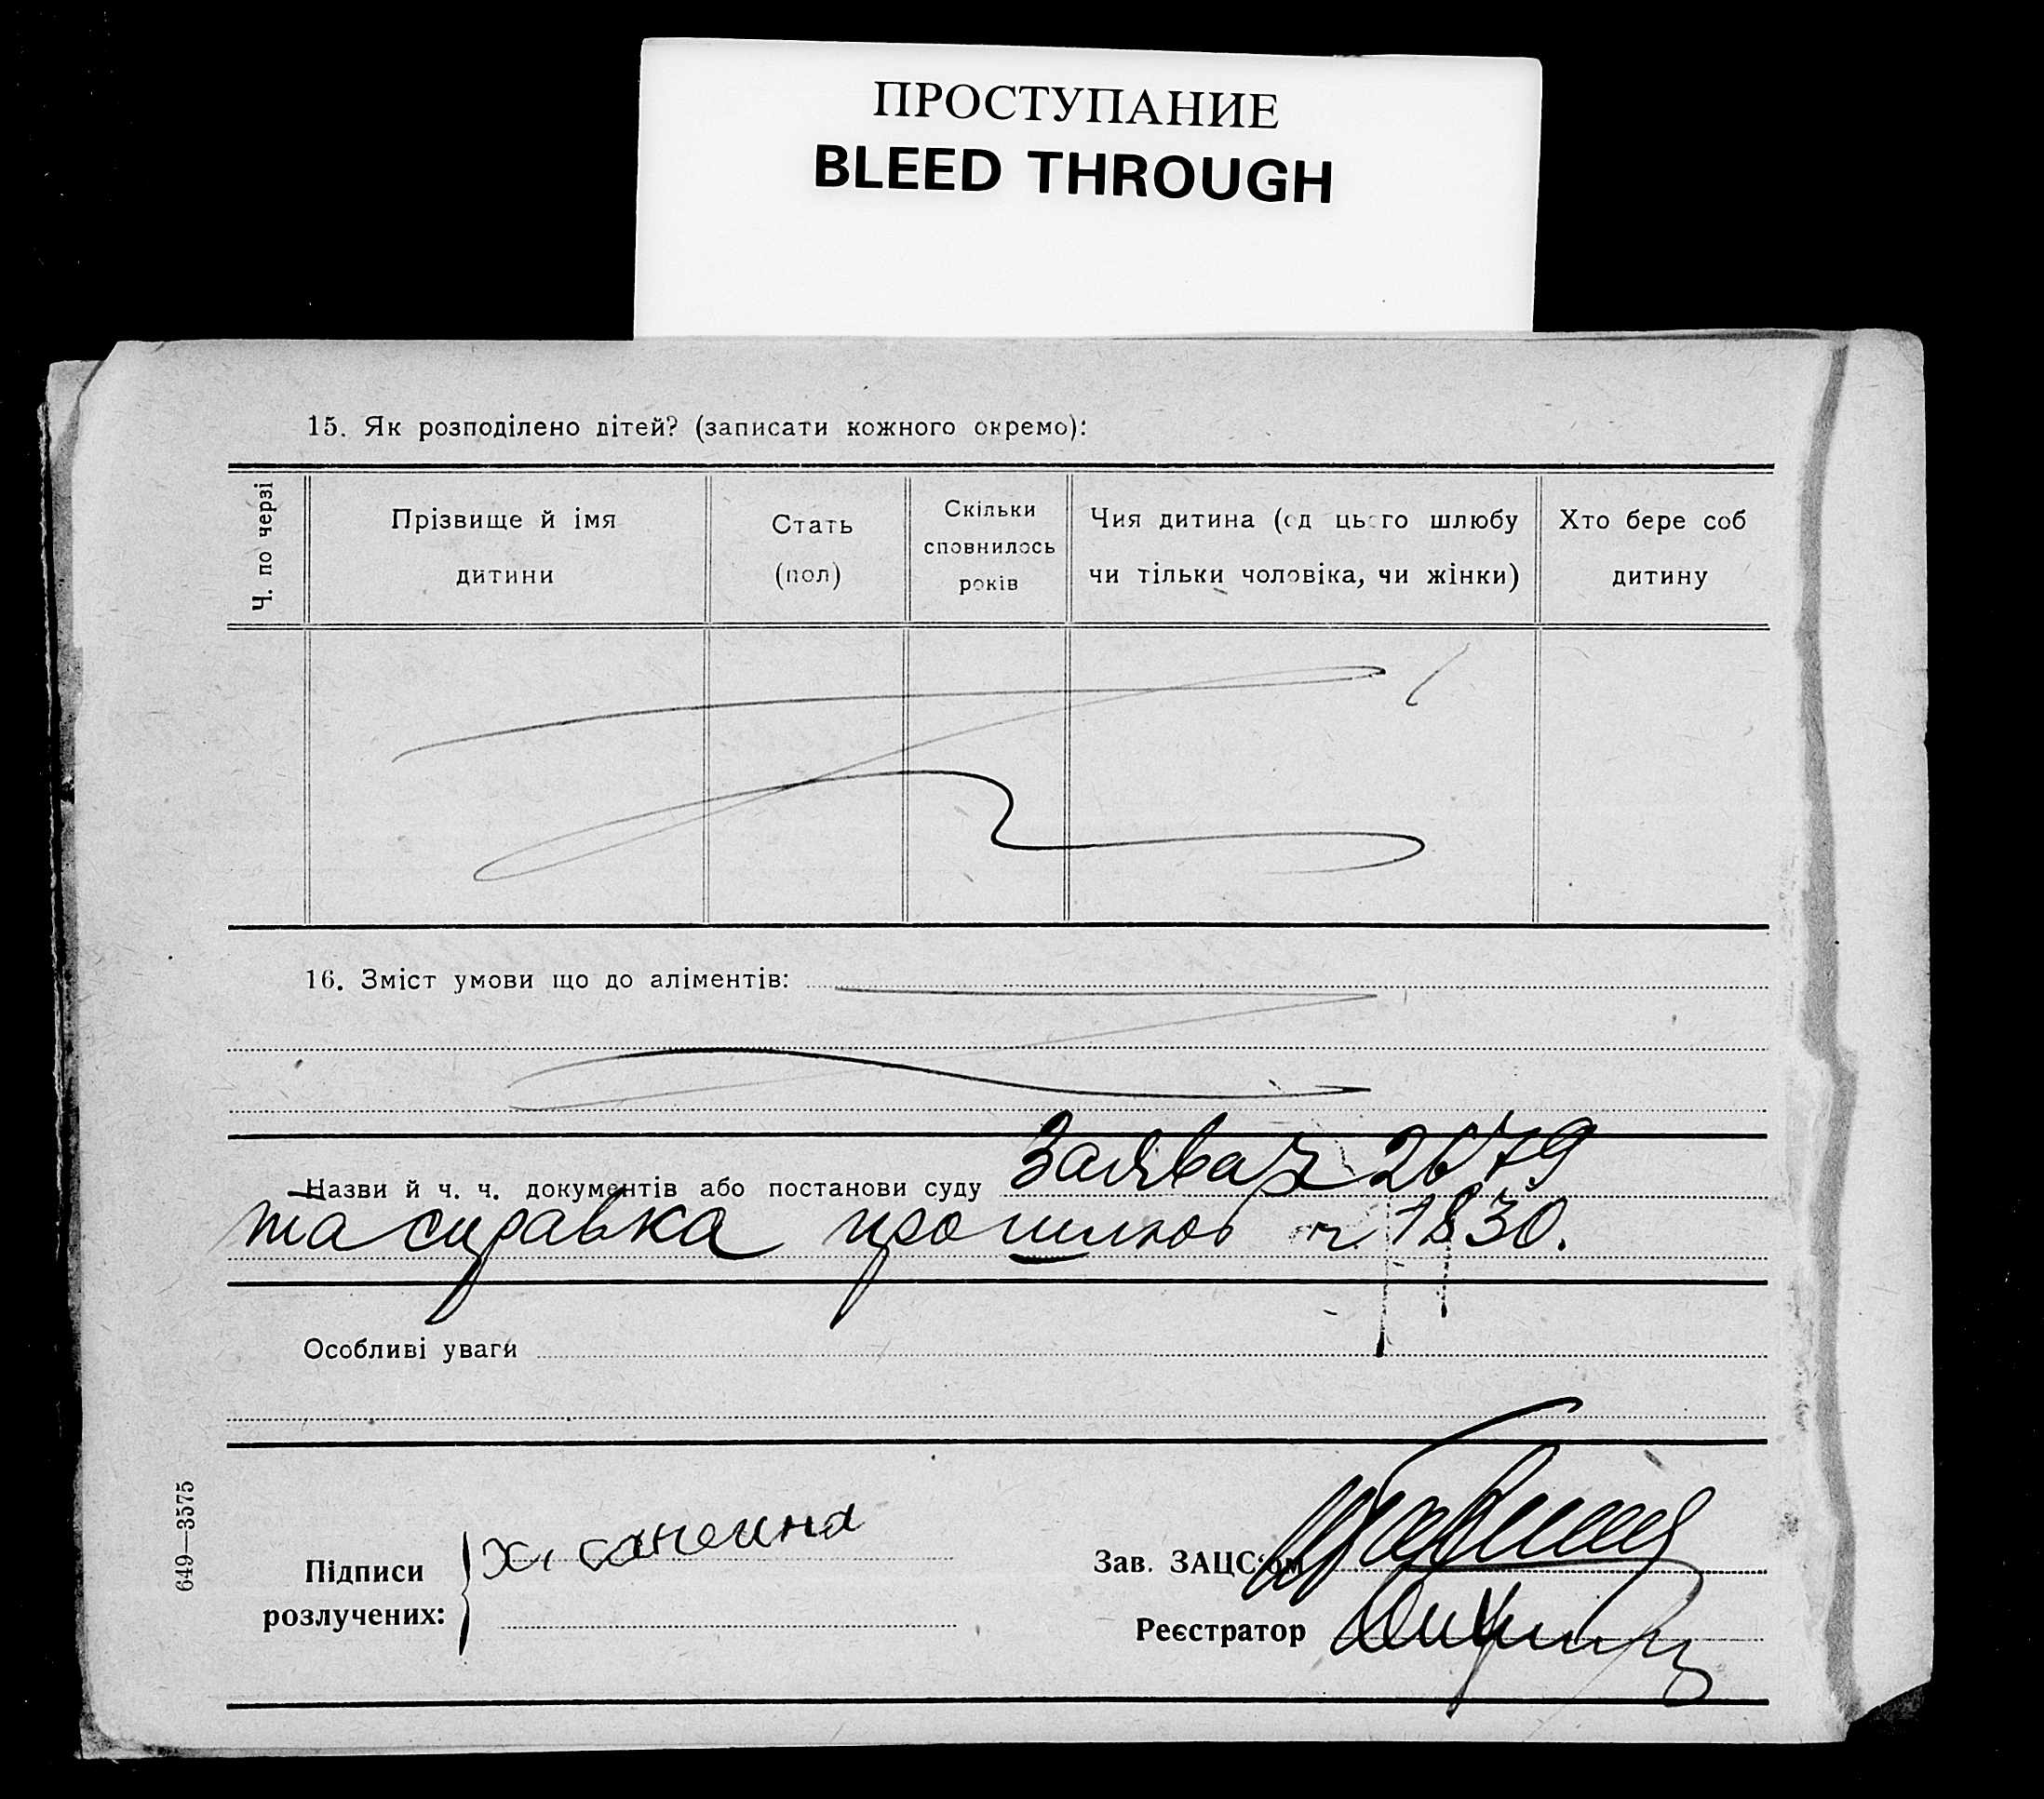 ПРОСТУПАНИЕ
BLEED THROUGH
15. Як розподілено дітей? (записати кожного окремо):
Ч. по черзі
Прізвище й імя
дитини
Стать
(пол)
Скільки
сповнилось
років
Чия дитина (од цього шлюбу
чи тільки чоловіка, чи жінки)
Хто бере соб
дитину
16. Зміст умови що до аліментів:
Назви й ч. ч. документів або постанови суду Заява ч 2679
та справка про шлюб ч 1830.
Особливі уваги
649—3575
Підписи
розлучених:
Х.
Зав. ЗАЦС'ом
Реєстратор